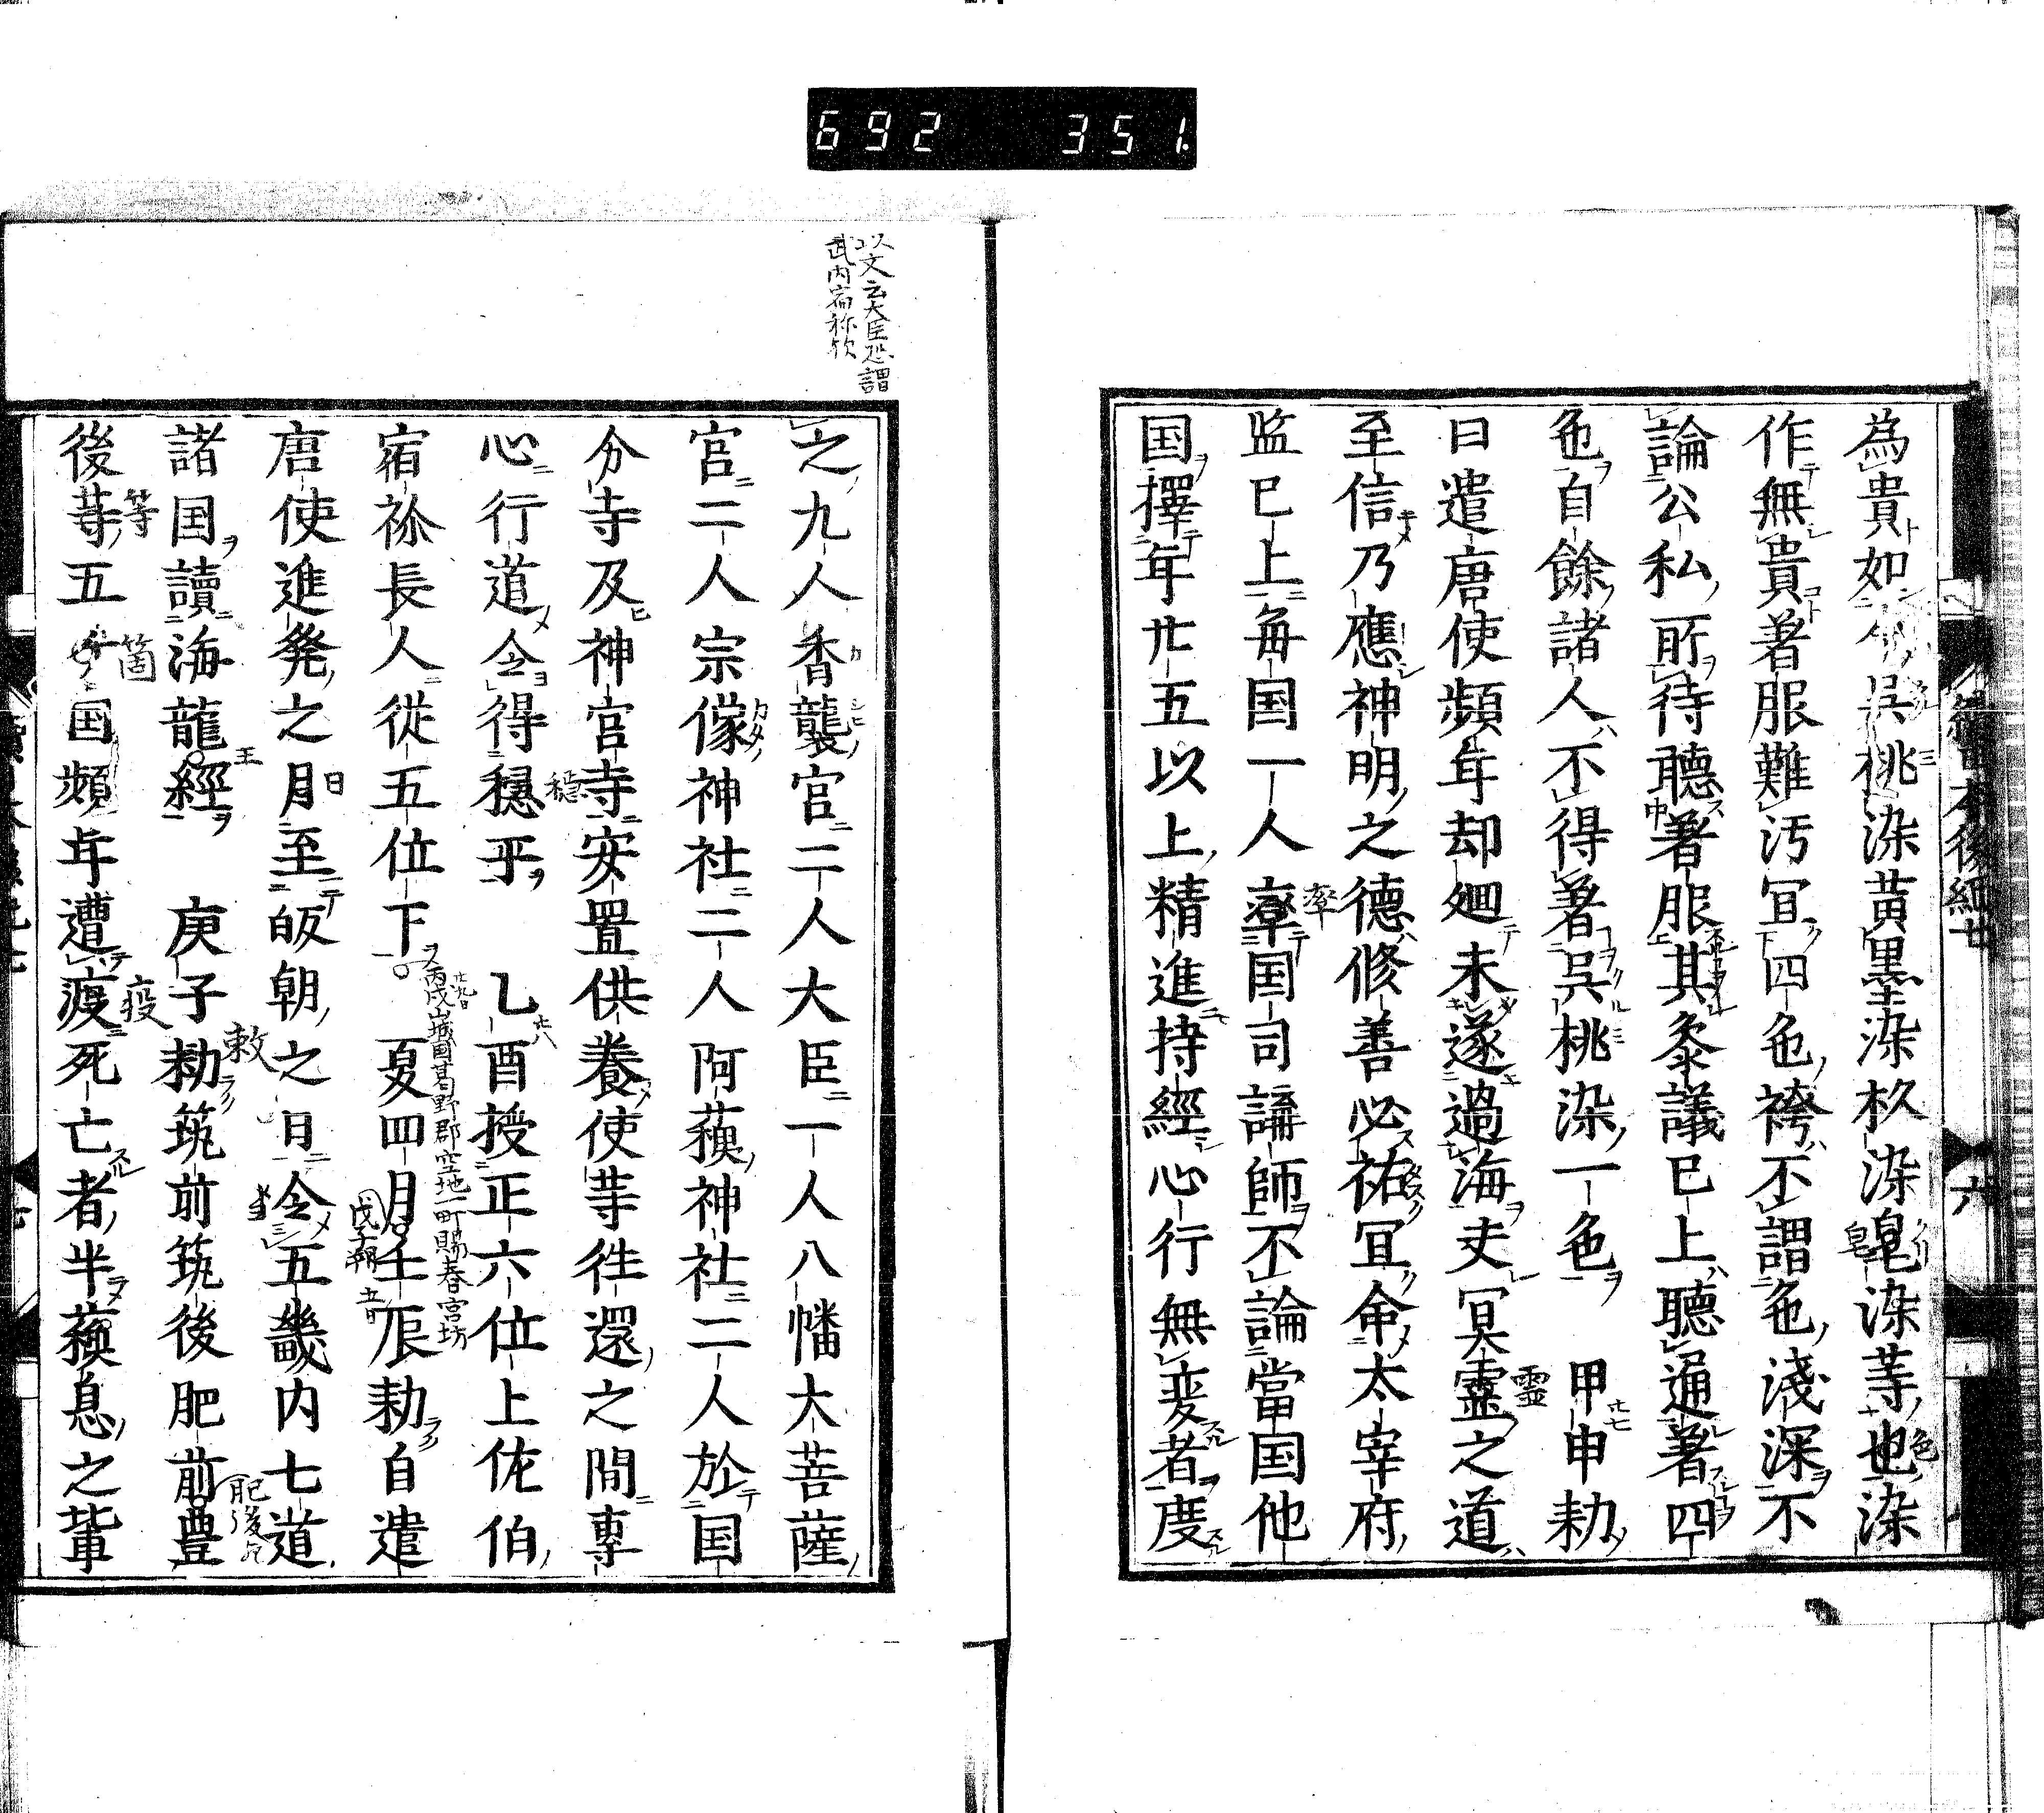 692 351.
続日本後紀七 六
為貴如 呉桃染黄墨染杦染皂染䓁也染
作無貴著服難汚冝四色袴不謂色淺深不
論公私所待聽著服其叅議已上聽通著四
色自餘諸人不得著呉桃染一色 甲申勑
曰遣唐使頻年却廻未遂過海夫冥霊之道
至信乃應神明之德修善必祐冝命太宰府
監已上毎国一人率国司講師不論當国他
国擇年廿五以上精進持經心行無変者度
以文云大臣恐謂
武内宿祢欤
之九人香襲宮二人大臣一人八幡大菩薩
宮二人宗像神社二人阿蘓神社二人於国
分寺及神宮寺安置供養使䓁徃還之間專
心行道令得穏平 乙酉授正六位上佐伯
宿祢長人從五位下 夏四月壬辰勑自遣
丙戌山城國葛野郡空地一町賜春宮坊
戊子朔
唐使進発之月至皈朝之日令五畿内七道
諸国讀海龍經 庚子勑筑前筑後肥前豊
後䓁五 国頻年遭疫死亡者半蘓息之輩